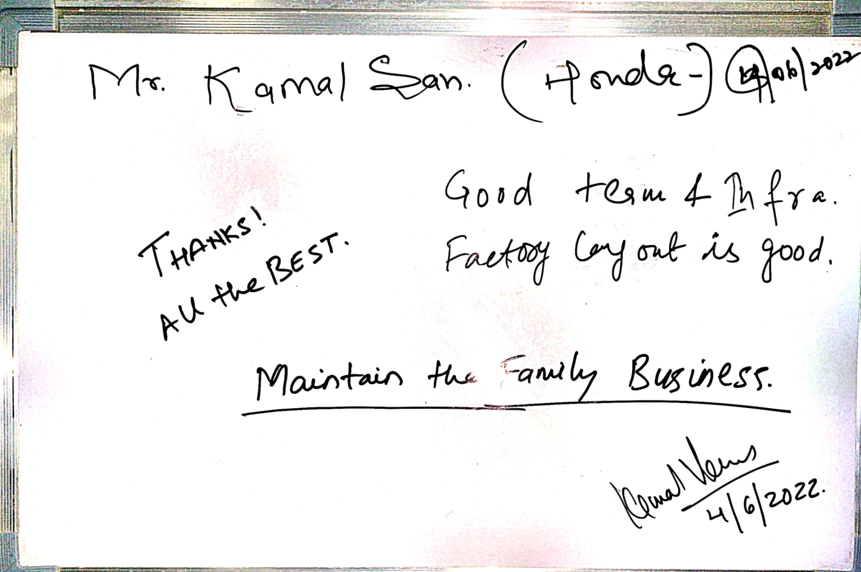 Mr. Kamal San. (Honda-) 04/06/2022
Good team & Infra.
Factory layout is good.
THANKS!
All the BEST.
Maintain the Family Business.
Kamal
4/6/2022.